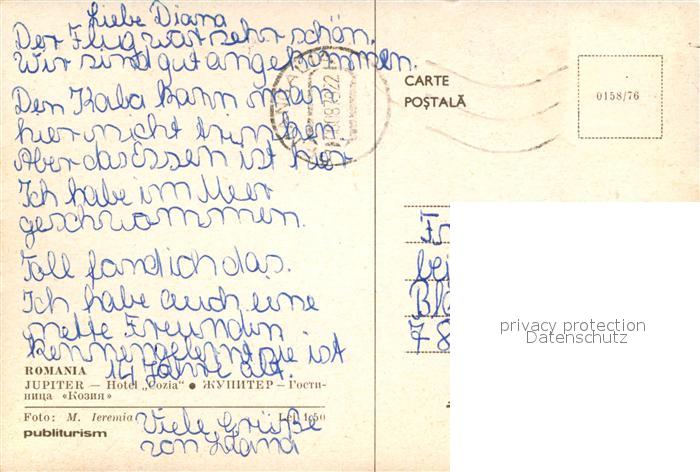 Liebe Diana
Der Flug war sehr schön.
Wir sind gut angekommen.
Den Kaba kann man
hier nicht trinken.
Aber das Essen ist hier
Ich habe im Meer
geschwommen.
Toll fand ich das.
Ich habe auch eine
nette Freundin
kennengelernt sie ist
14 Jahre alt.
Viele Grüße
von
ROMANIA
JUPITER — Hotel „Cozia“ ● ЖУПИТЕР — Гости-
ница «Козия»
Foto: M. Ieremia Lei 1,50
publiturism
CARTE
POȘTALĂ
0158/76
Fr
bei
Bl
78
privacy protection
Datenschutz